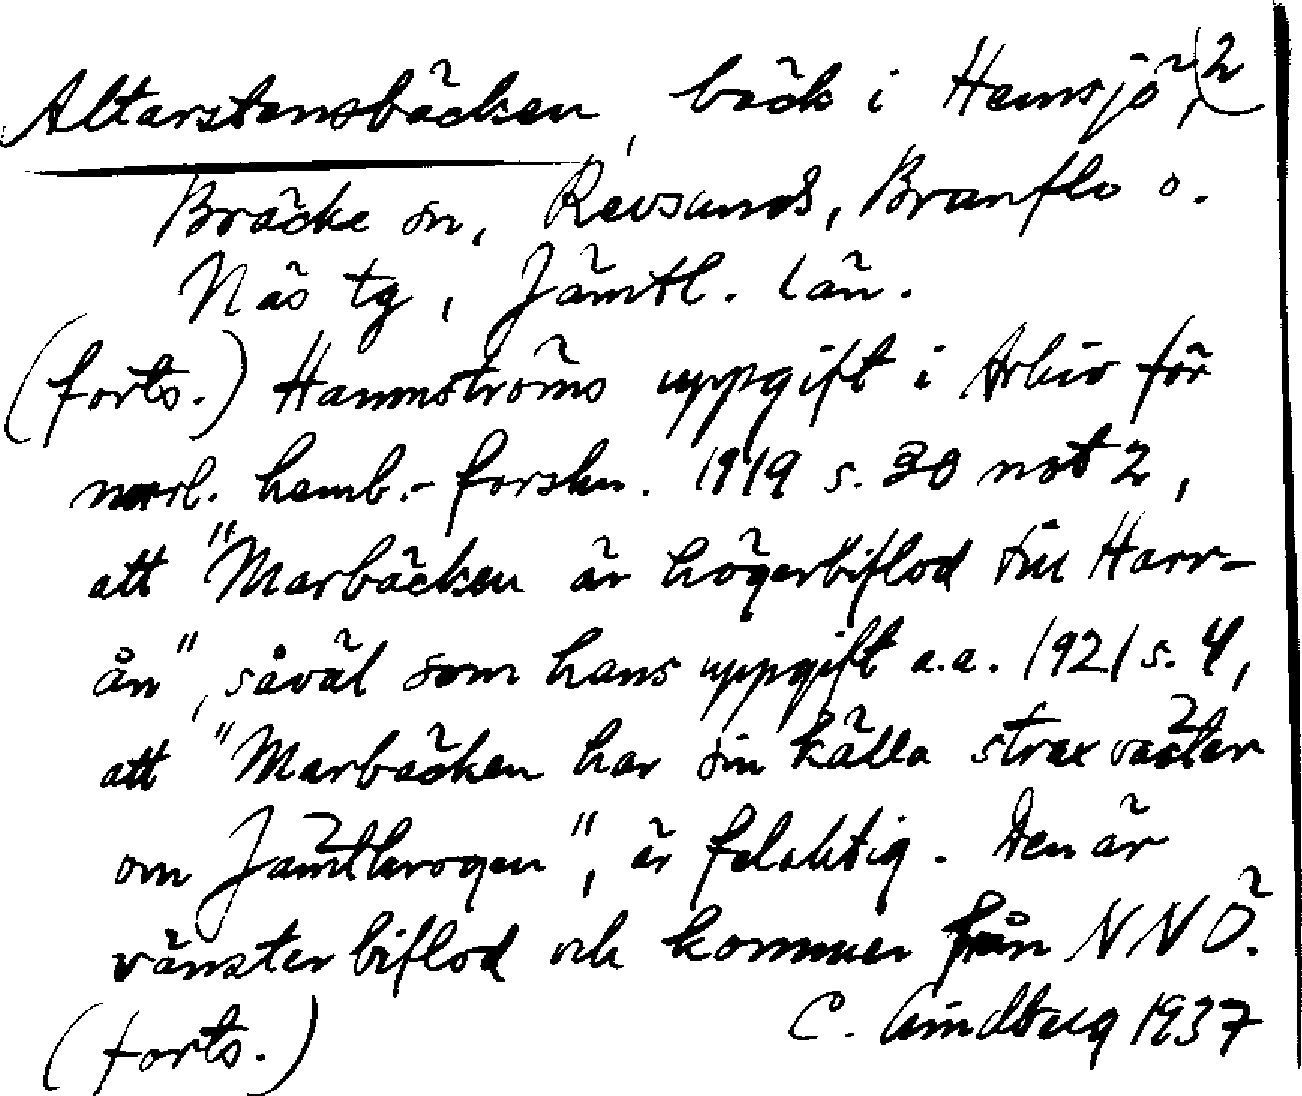 Altarstensbäcken, bäck i Hemsjö, 2
Bräcke sn, Revsunds, Brunflo o.
Näs tg, Jämtl. län.
(forts.) Hammströms uppgift i Arkiv för
norrl. hemb.- forskn. 1919 s. 30 not 2,
att "Marbäcken är högerbiflod till Harr-
ån", såväl som hans uppgift a.a. 1921 s. 4,
att "Marbäcken har sin källa strax väster
om Jämtkrogen", är felaktig. Den är
vänsterbiflod och kommer från NNÖ.
(forts.) C. Lindberg 1937